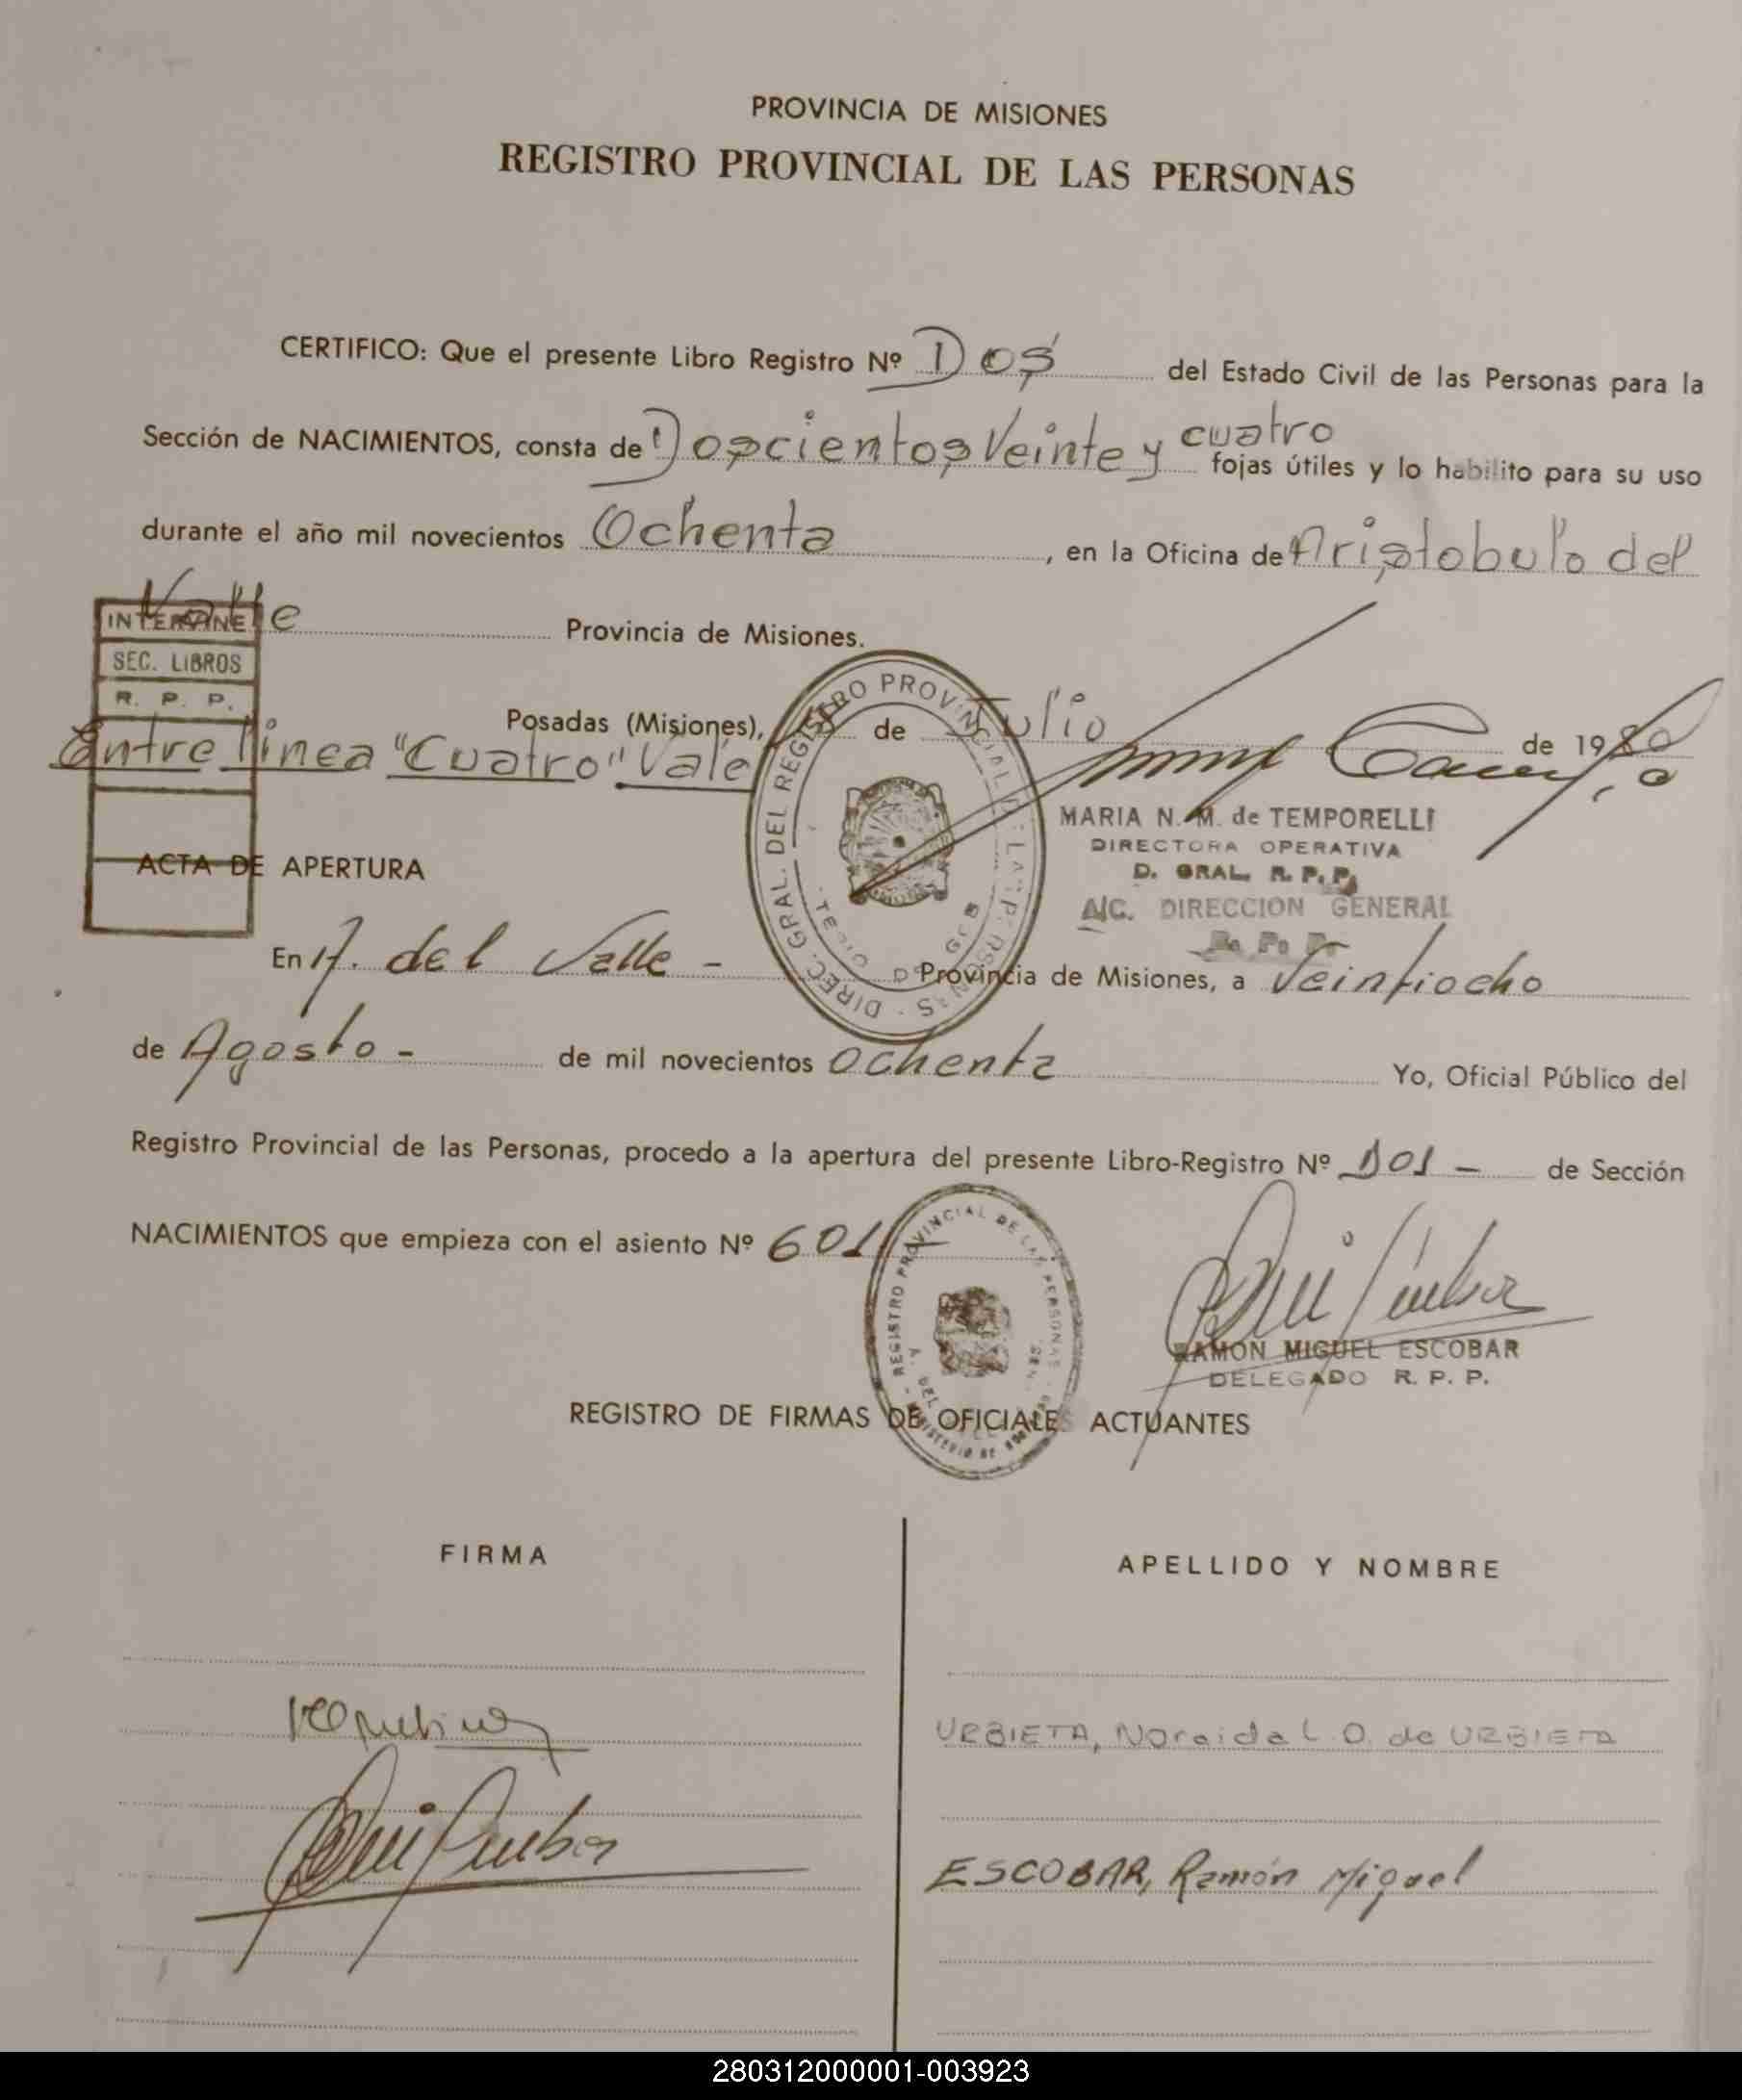 PROVINCIA DE MISIONES
REGISTRO PROVINCIAL DE LAS PERSONAS
CERTIFICO: Que el presente Libro Registro Nº Dos del Estado Civil de las Personas para la
cuatro
Sección de NACIMIENTOS, consta de Doscientos Veinte y fojas útiles y lo habilito para su uso
durante el año mil novecientos Ochenta, en la Oficina de Aristobulo del
Valle Provincia de Misiones.
INTERVINE
SEC. LIBROS
R. P. P.
Posadas (Misiones), de Julio de 1980
Entre línea "Cuatro" Vale
DIREC. GRAL. DEL REGISTRO PROVINCIAL
MARIA N. M. de TEMPORELLI
DIRECTORA OPERATIVA
D. GRAL. R. P. P.
A/C. DIRECCION GENERAL
R. P. P.
ACTA DE APERTURA
En A. del Valle - Provincia de Misiones, a Veintiocho
de Agosto - de mil novecientos ochenta Yo, Oficial Público del
Registro Provincial de las Personas, procedo a la apertura del presente Libro-Registro Nº DOS - de Sección
NACIMIENTOS que empieza con el asiento Nº 601 -
REGISTRO PROVINCIAL DE LAS PERSONAS
RAMON MIGUEL ESCOBAR
DELEGADO R. P. P.
REGISTRO DE FIRMAS DE OFICIALES ACTUANTES
FIRMA
APELLIDO Y NOMBRE
URBIETA, Noraida L. O. de URBIETA
ESCOBAR, Ramón Miguel
280312000001-003923